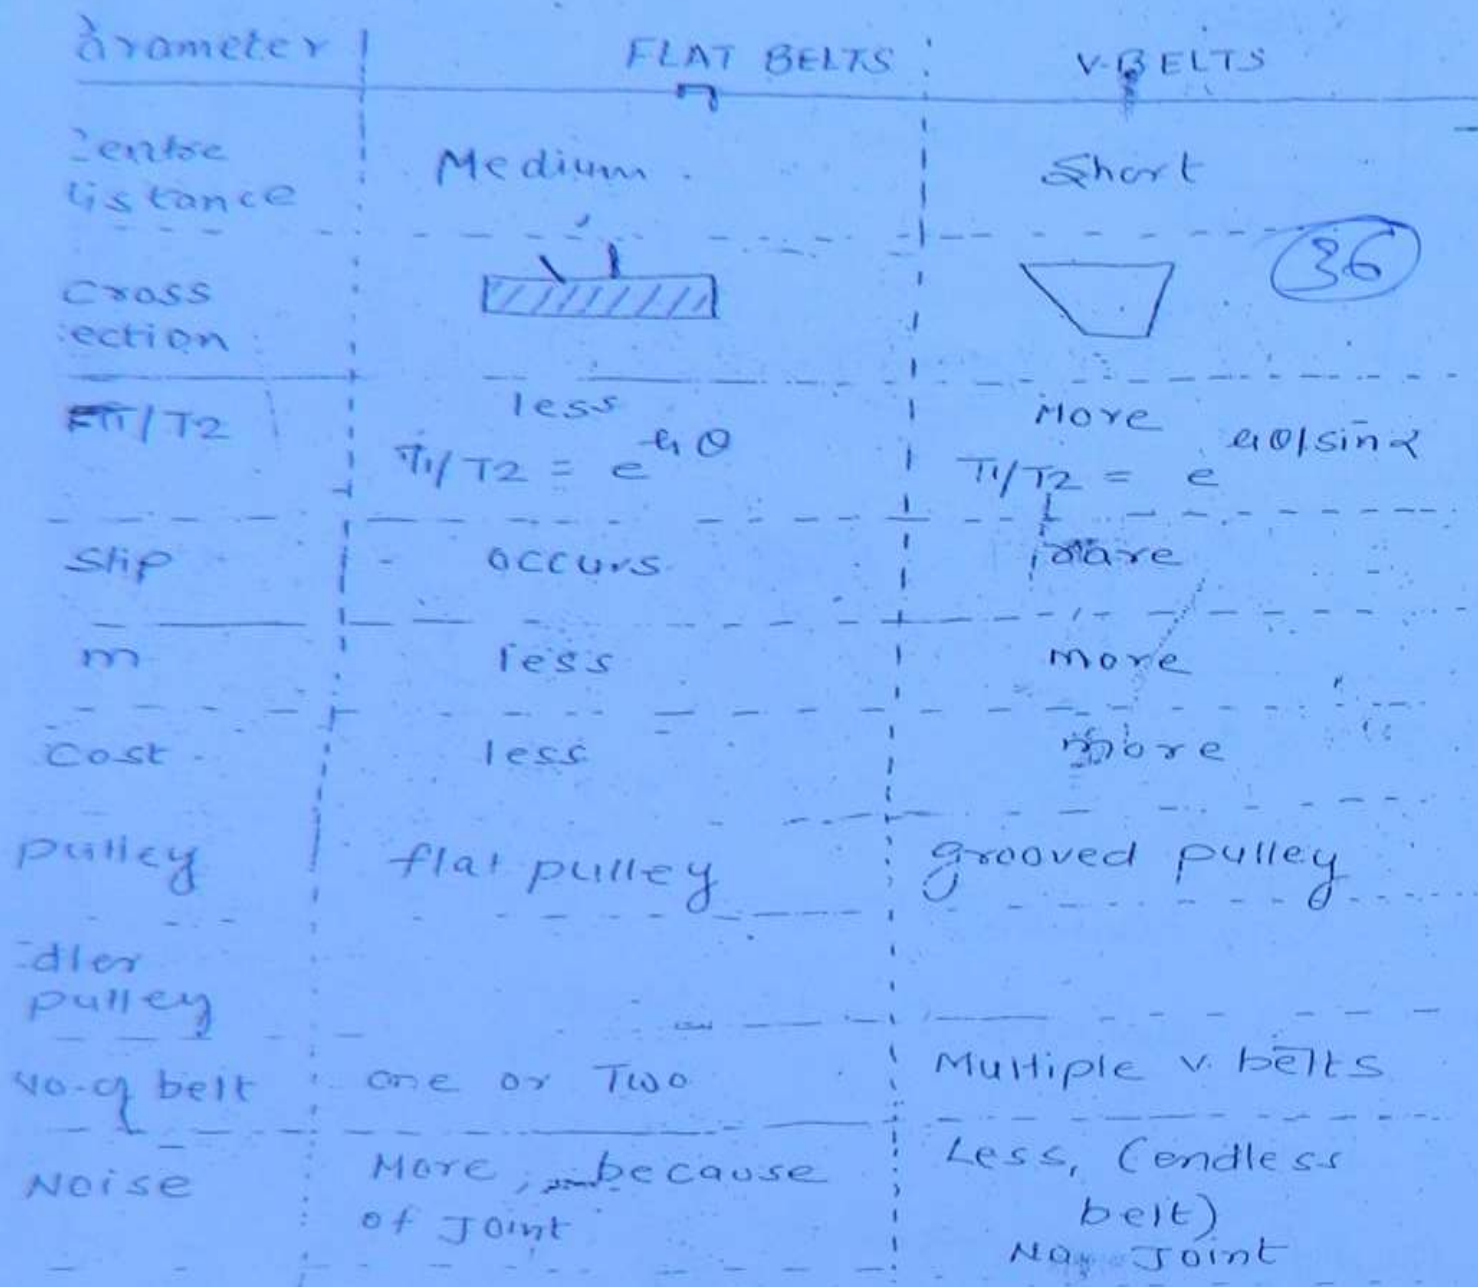 arameter FLAT BELTS V-BELTS
entre Medium. Short
istance
36
cross
ection
T1/T2 less More
T1/T2 = e^μθ T1/T2 = e^μθ/sinα
Slip occurs rare
m less more
Cost less more
pulley flat pulley grooved pulley
dler
pulley
No. of belt one or Two Multiple v. belts
Noise More, because Less, (endless
of Joint belt)
No Joint